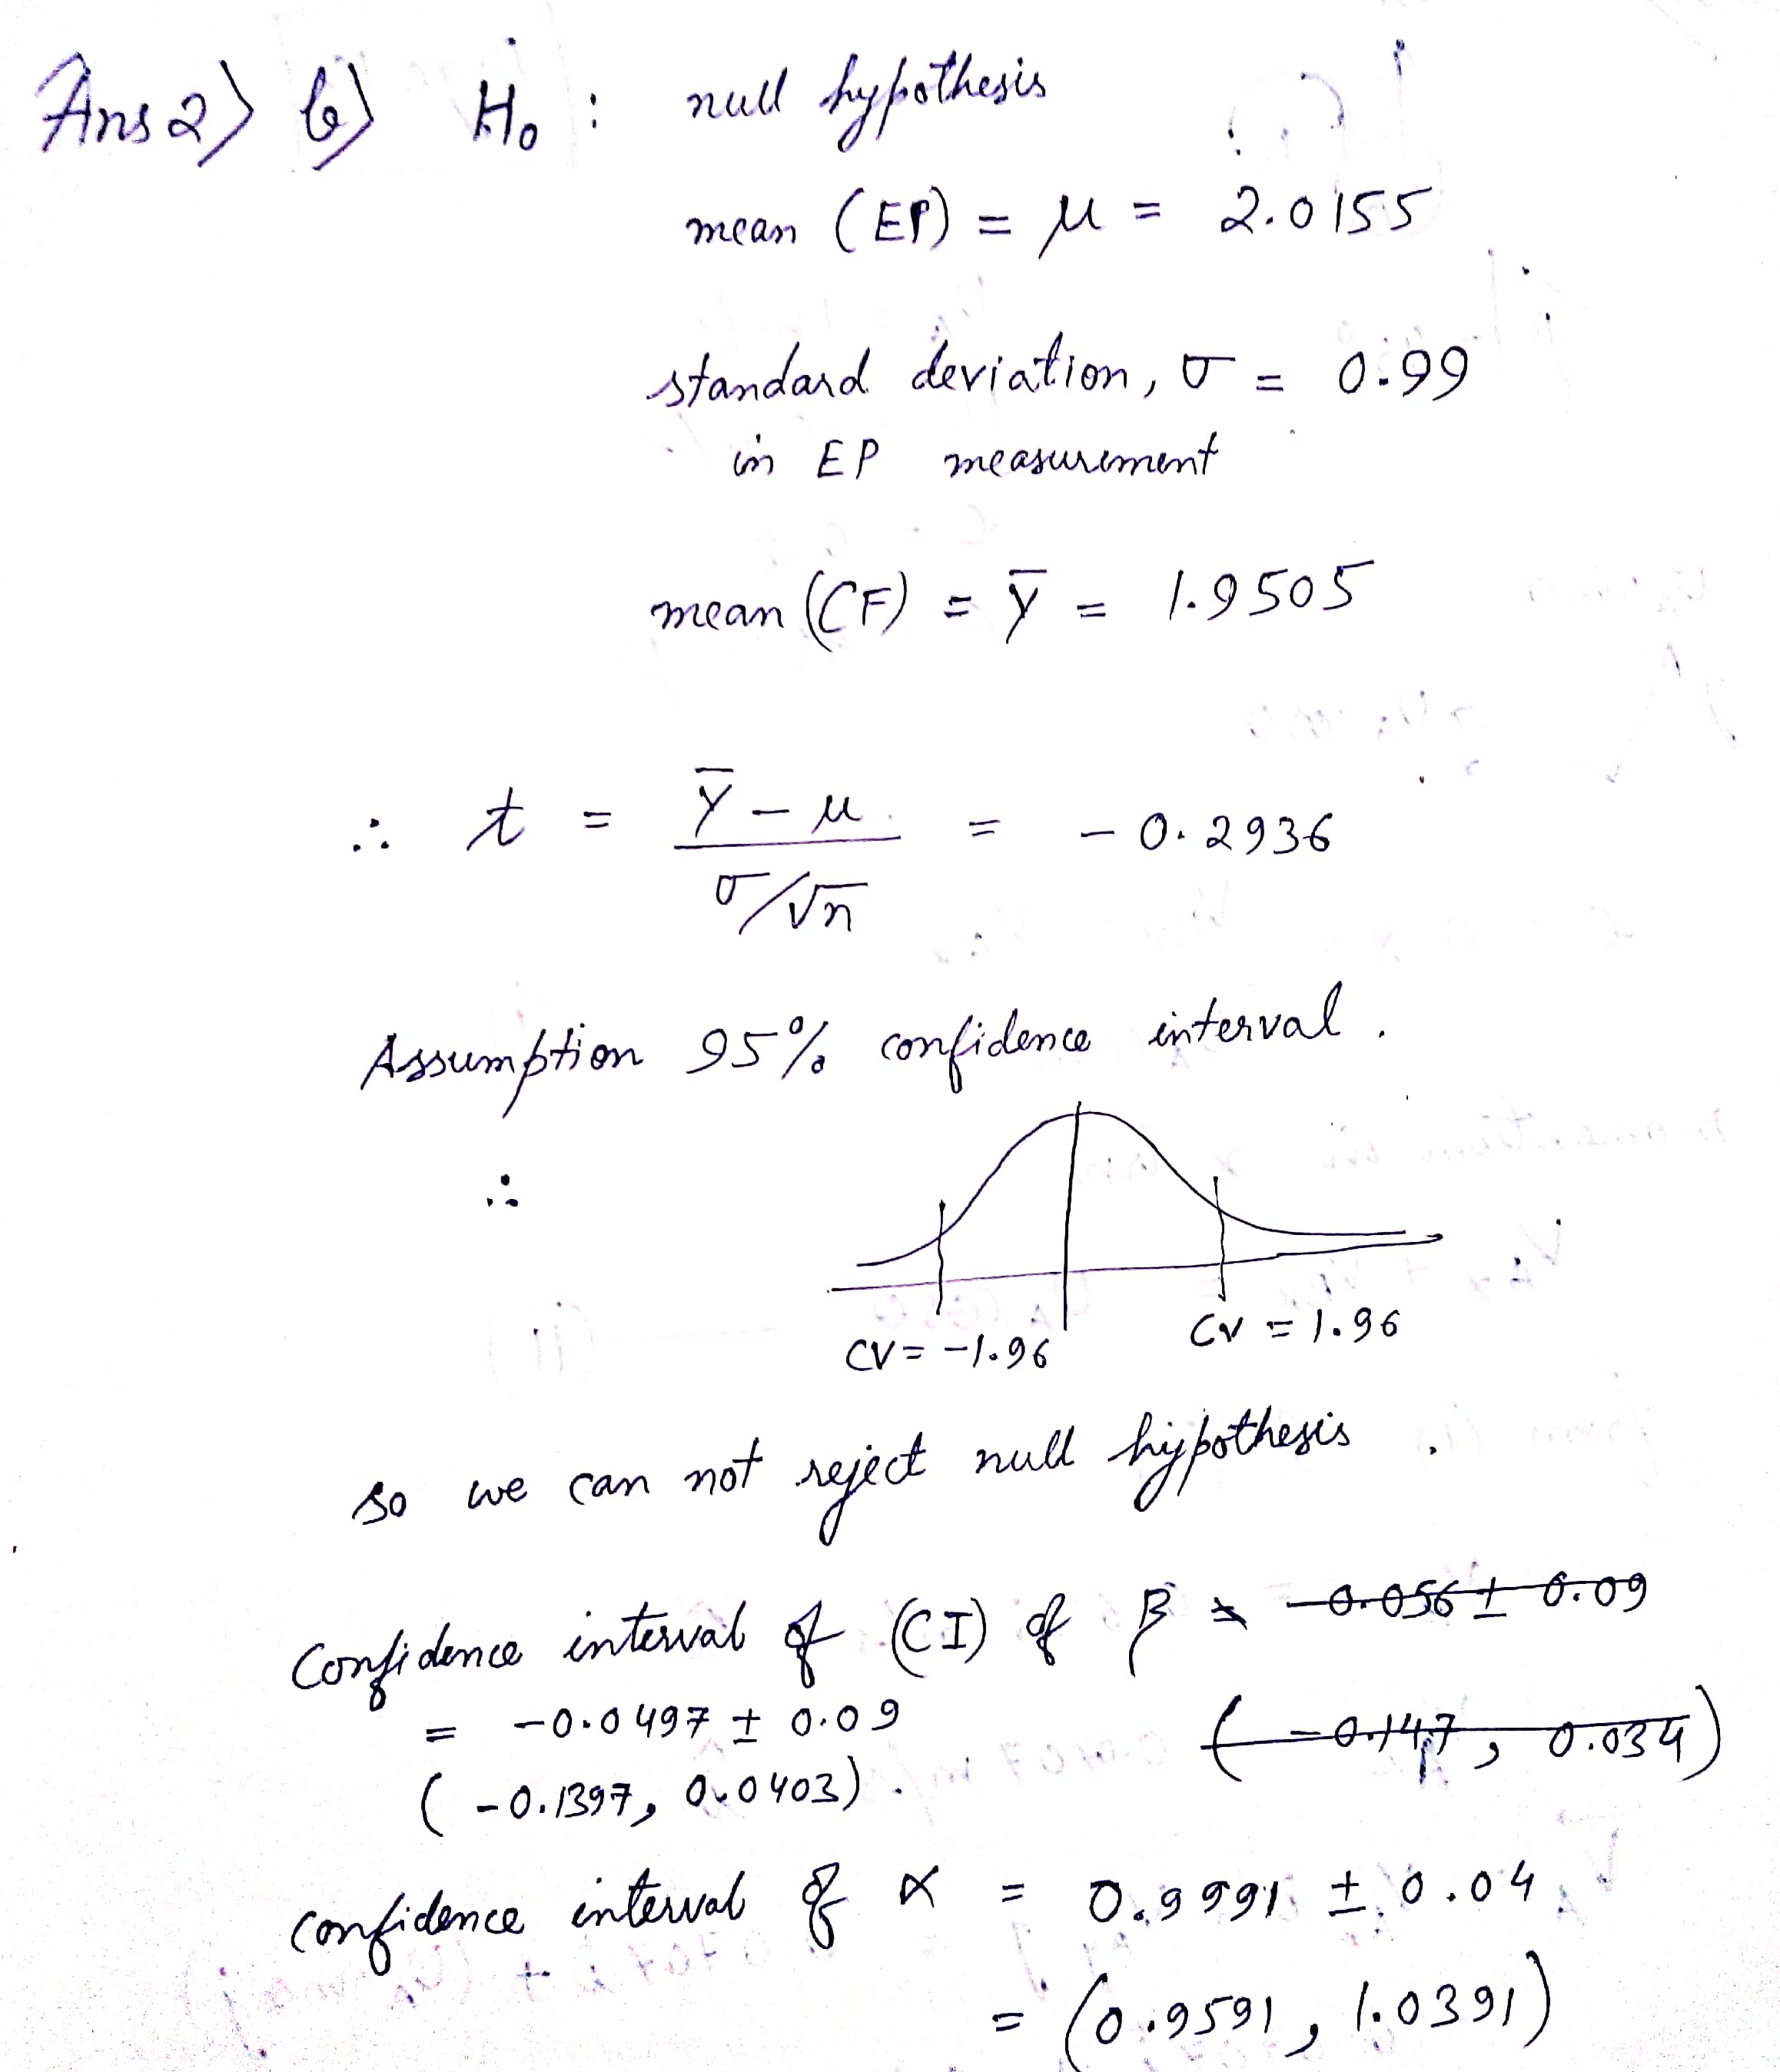 Ans 2) b) H₀ : null hypothesis
mean (EP) = μ = 2.0155
standard deviation, σ = 0.99
in EP measurement
mean (CF) = ȳ = 1.9505
∴ t = (ȳ - μ) / (σ/√n) = - 0.2936
Assumption 95% confidence interval.
∴
CV = -1.96 CV = 1.96
so we can not reject null hypothesis.
Confidence interval of (CI) of β = -0.056 ± 0.09
= -0.0497 ± 0.09 (-0.147, 0.034)
(-0.1397, 0.0403).
confidence interval of α = 0.9991 ± 0.04
= (0.9591, 1.0391)